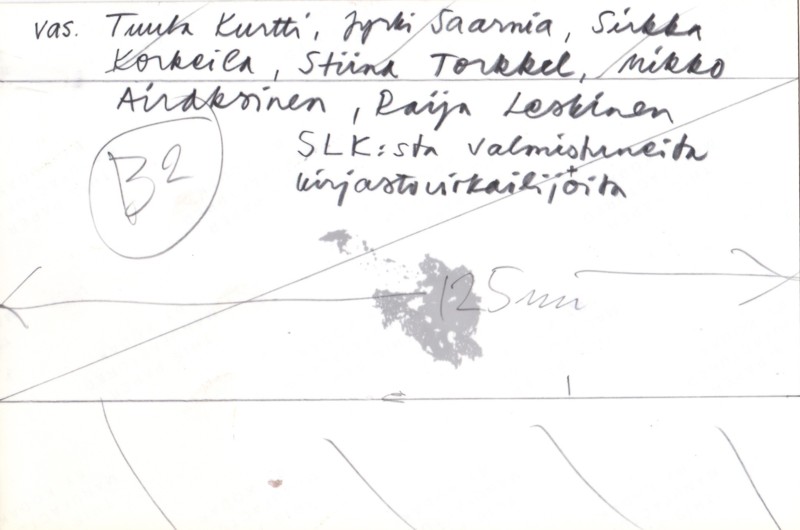 vas. Tuula Kurtti, Jyrki Saarnia, Sirkka
Korkeila, Stiina Torkkel, Mikko
Airaksinen, Raija Leskinen
SLK:sta valmistuneita
kirjastovirkailijoita
B2
125 mm